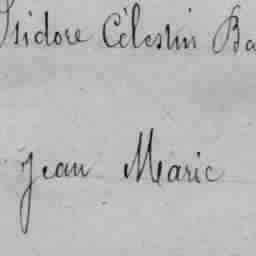 Isidore Célestin Ba
Jean Marie